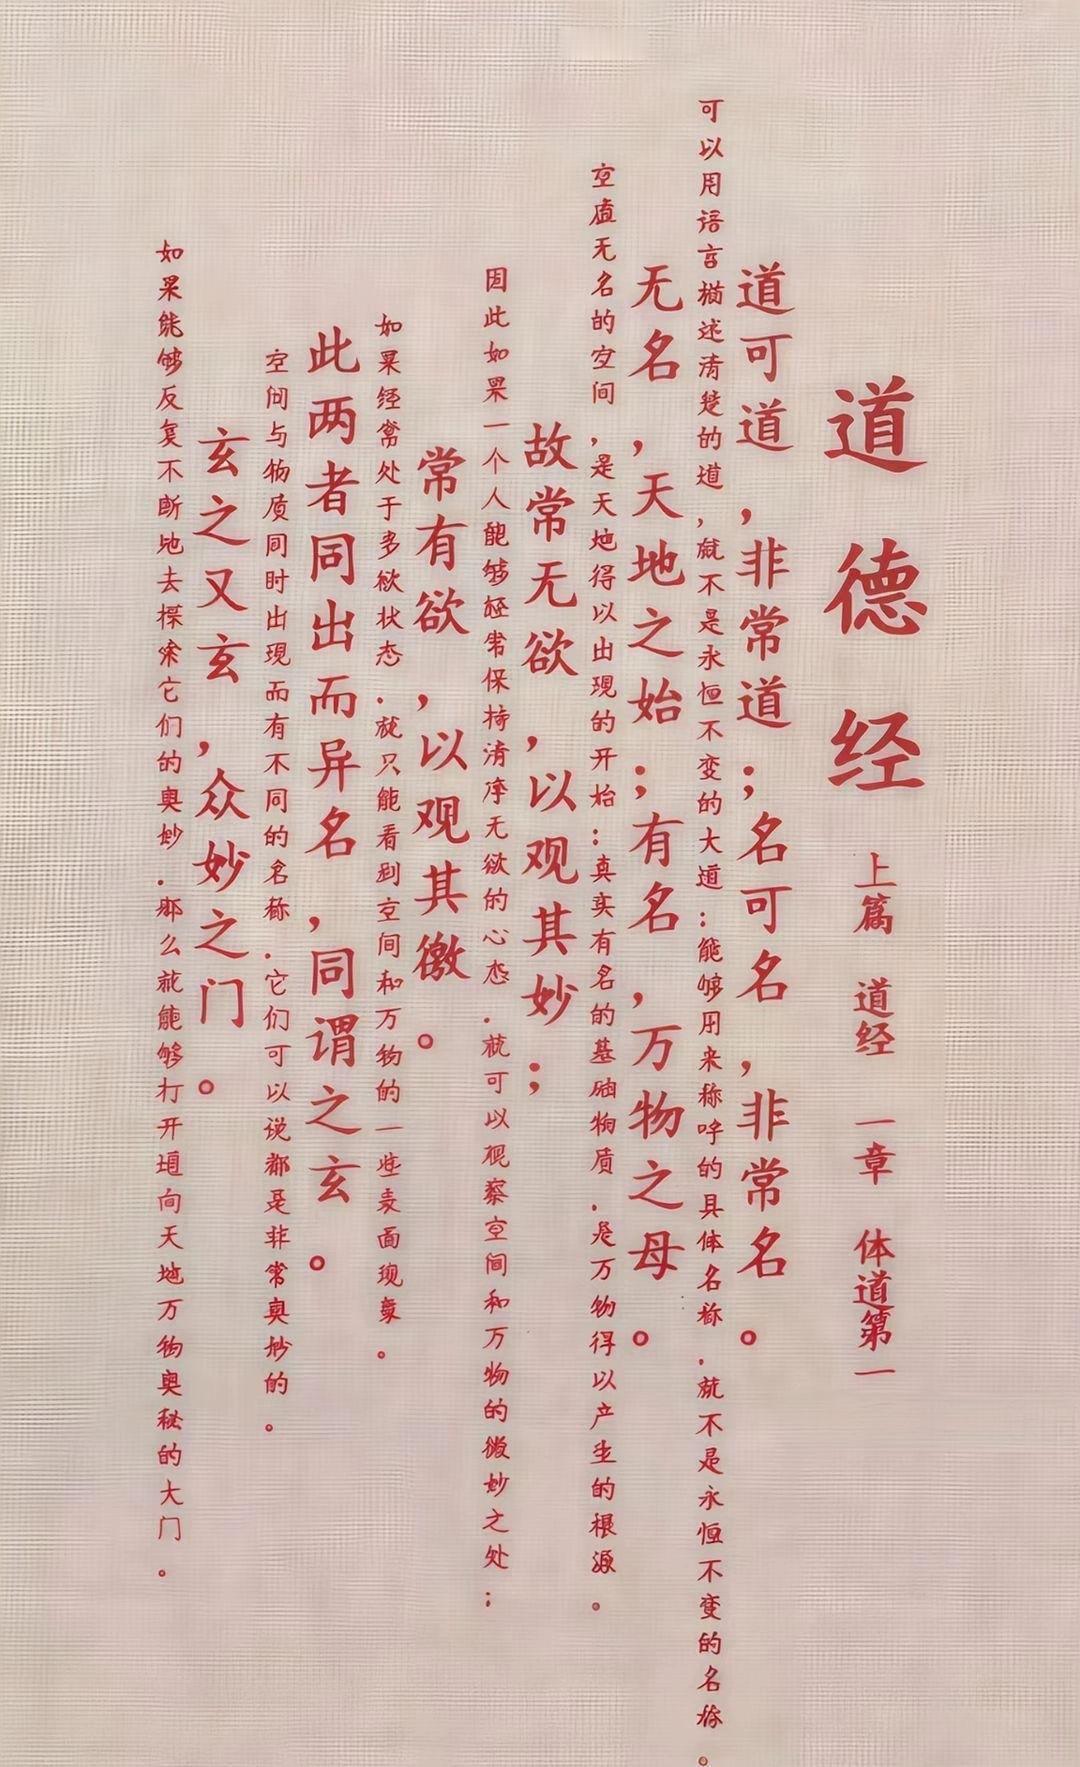 道德经
上篇 道经 一章 体道第一
道可道，非常道；名可名，非常名。
可以用语言描述清楚的道，就不是永恒不变的大道：能够用来称呼的具体名称．就不是永恒不变的名称。
无名，天地之始；有名，万物之母。
空虚无名的空间，是天地得以出现的开始：真实有名的基础物质．是万物得以产生的根源。
故常无欲，以观其妙；
因此如果一个人能够经常保持清净无欲的心态．就可以观察空间和万物的微妙之处；
常有欲，以观其徼。
如果经常处于多欲状态．就只能看到空间和万物的一些表面现象。
此两者同出而异名，同谓之玄。
空间与物质同时出现而有不同的名称．它们可以说都是非常奥妙的。
玄之又玄，众妙之门。
如果能够反复不断地去探索它们的奥妙．那么就能够打开通向天地万物奥秘的大门。